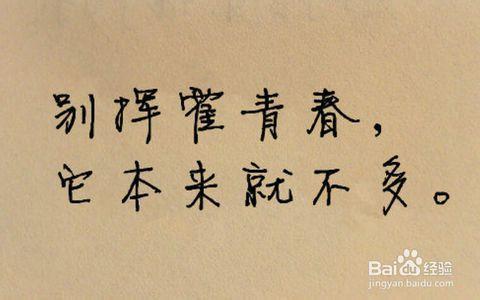 别挥霍青春，
它本来就不多。
Baidu经验
jingyan.baidu.com